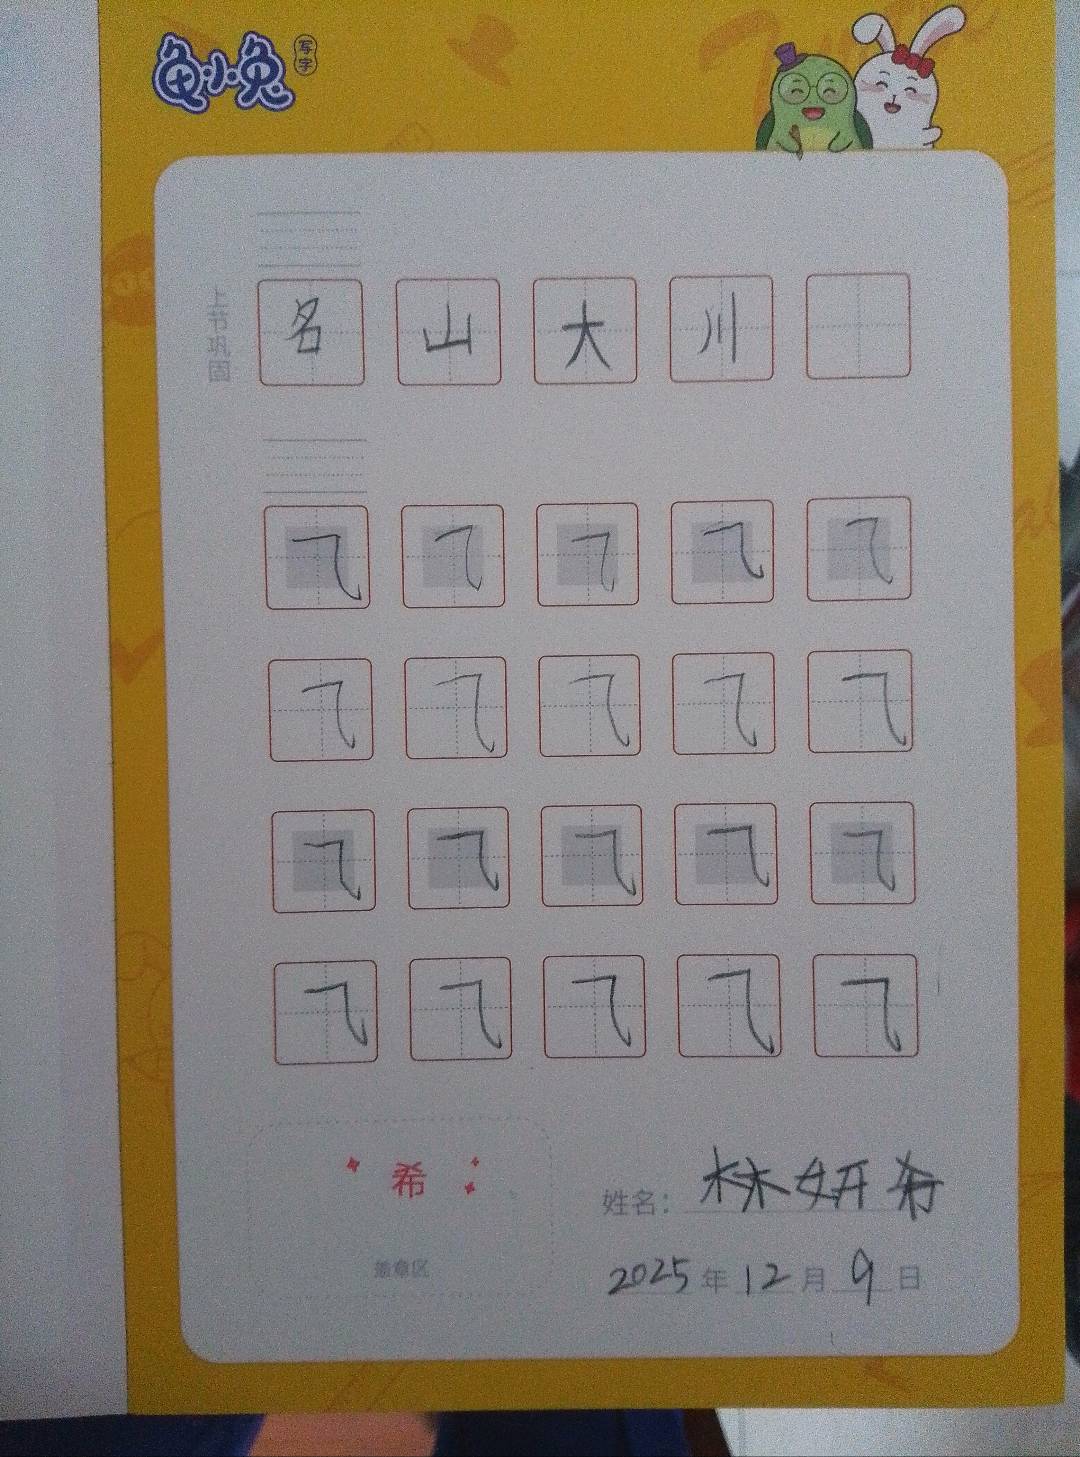 龟小兔写字
上节巩固
名山大川
⺄⺄⺄⺄⺄
⺄⺄⺄⺄⺄
⺄⺄⺄⺄⺄
⺄⺄⺄⺄⺄
希
盖章区
姓名：林妍希
2025年12月9日